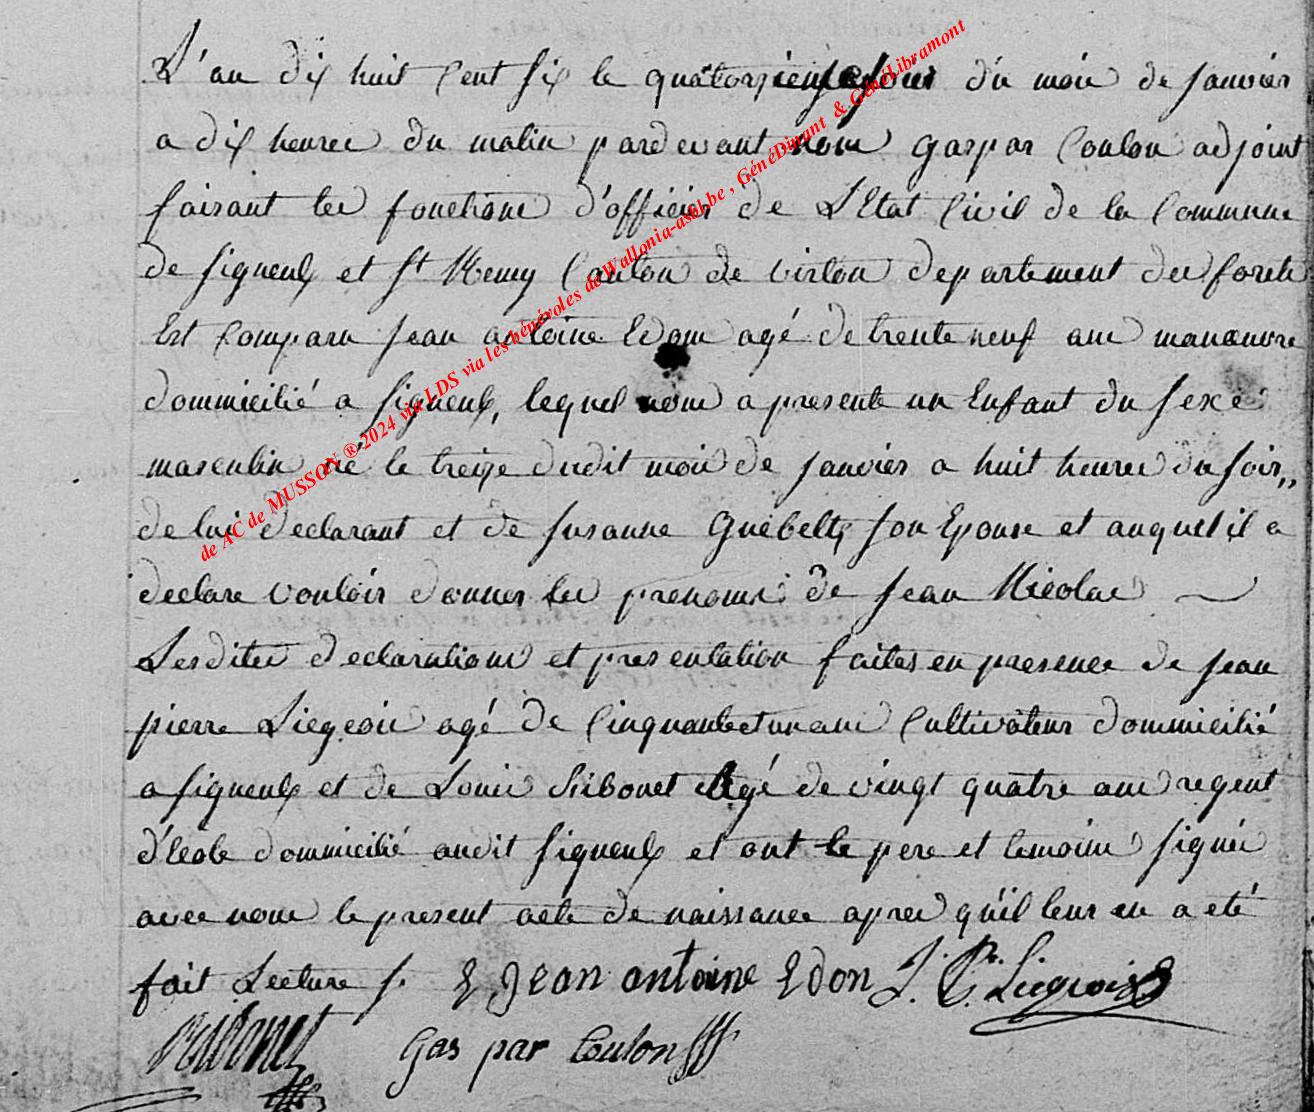 L'an dix huit Cent six le quatorzieme jour du mois de janvier
a dix heures du matin pardevant nous gaspar Coulon adjoint
faisant les fonctions d'officier de L'Etat Civil de la Commune
de signeulx et st Remy Canton de virton departement des forets
Est Comparu jean antoine Edon agé de trente neuf ans manœuvre
dommicilié a signeulx, lequel nous a presenté un Enfant du sexe
masculin né le treize dudit mois de janvier a huit heures du soir,,
de lui declarant et de susanne son Epouse et auquel il a
declare vouloir donner les prenoms de jean Nicolas
Lesdites declarations et presentation faites en presence de jean
pierre Liegeois agé de Cinquante et un ans Cultivateur dommicilié
a signeulx et de Louis Ribonet agé de vingt quatre ans regent
d'école dommicilié audit signeulx et ont le pere et temoins signés
avec nous le present acte de naissance apres qu'il leur en a eté
fait Lecture /. Jean antoine Edon J. P. Liegeois
Ribonet gas par Coulon
de AC de MUSSON ® 2024 via LDS via les bénévoles de Wallonia-asbl.be , GénéDinant & GénéLibramont